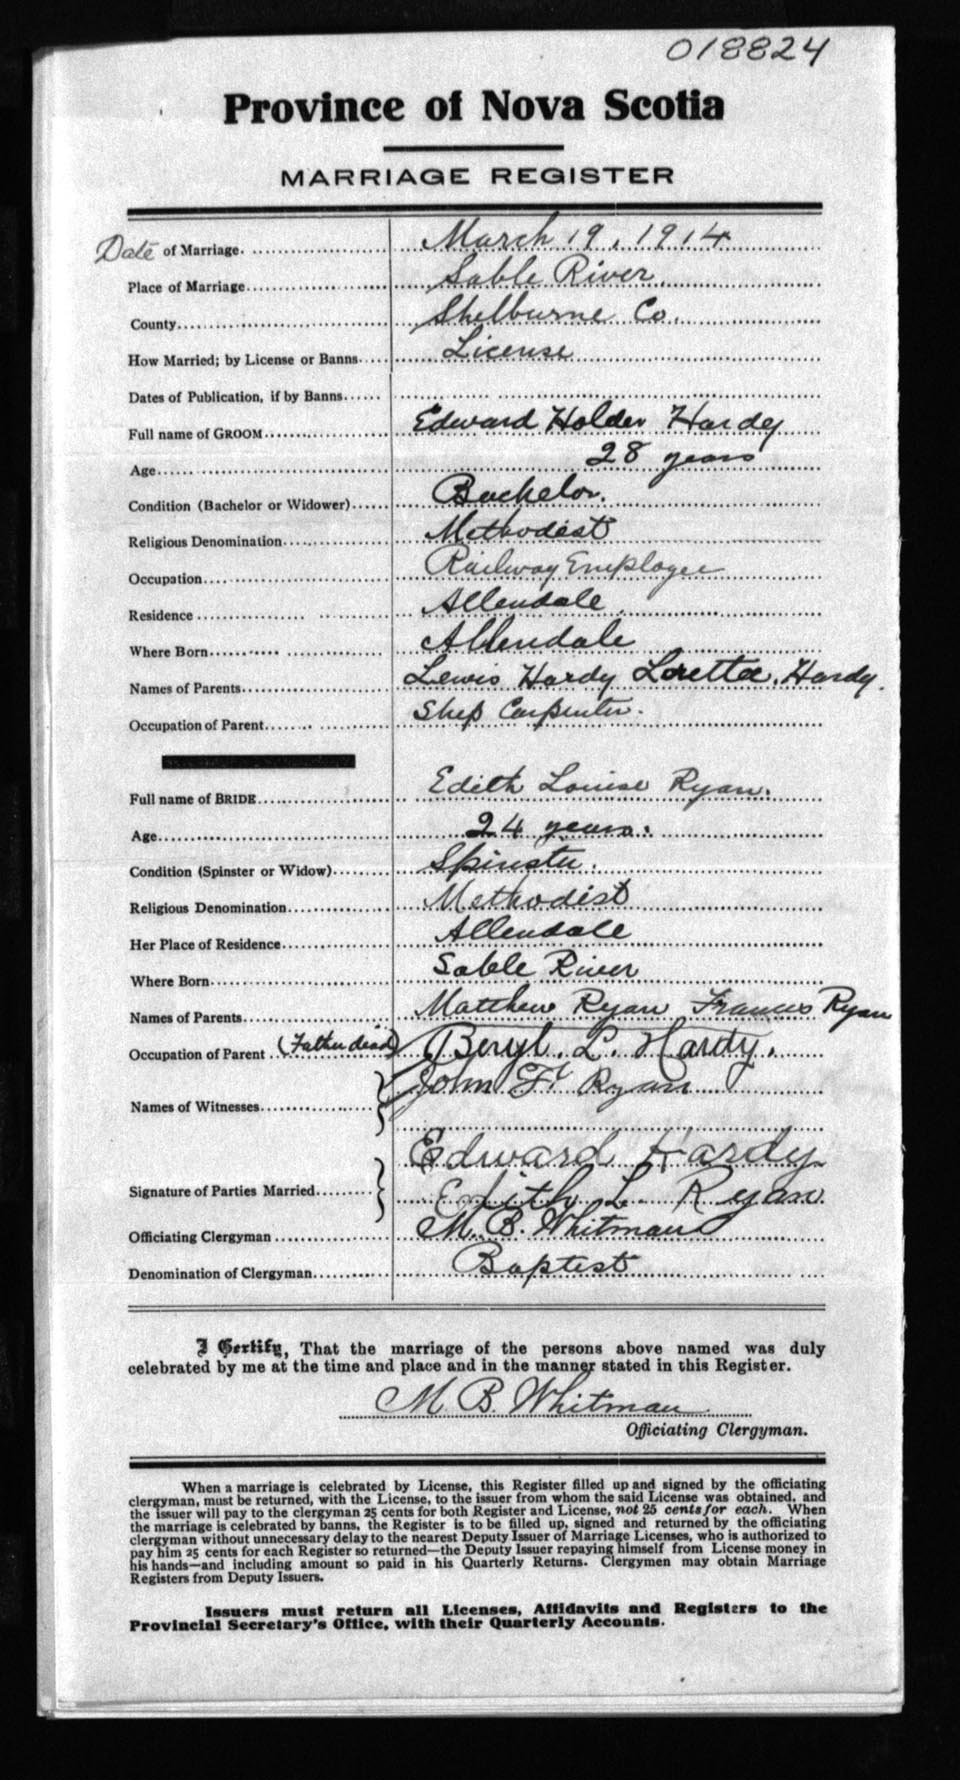 018824
Province of Nova Scotia
MARRIAGE REGISTER
Date of Marriage. March 19, 1914
Place of Marriage Sable River.
County Shelburne Co.
How Married; by License or Banns License
Dates of Publication, if by Banns
Full name of GROOM Edward Holder Hardy
Age 28 years
Condition (Bachelor or Widower) Bachelor.
Religious Denomination Methodist
Occupation Railway Employee
Residence Allendale.
Where Born Allendale
Names of Parents Lewis Hardy Loretta. Hardy.
Occupation of Parent Ship Carpenter.
Full name of BRIDE Edith Louise Ryan.
Age 24 years.
Condition (Spinster or Widow) Spinster.
Religious Denomination Methodist
Her Place of Residence Allendale
Where Born Sable River
Names of Parents Matthew Ryan Frances Ryan
Occupation of Parent (Father dead)
Beryl. L. Hardy.
Names of Witnesses John F. Ryan
Edward Hardy
Signature of Parties Married Edith L. Ryan
Officiating Clergyman M. B. Whitman
Denomination of Clergyman Baptist
I Certify, That the marriage of the persons above named was duly
celebrated by me at the time and place and in the manner stated in this Register.
M. B. Whitman
Officiating Clergyman.
When a marriage is celebrated by License, this Register filled up and signed by the officiating
clergyman, must be returned, with the License, to the issuer from whom the said License was obtained, and
the issuer will pay to the clergyman 25 cents for both Register and License, not 25 cents for each. When
the marriage is celebrated by banns, the Register is to be filled up, signed and returned by the officiating
clergyman without unnecessary delay to the nearest Deputy Issuer of Marriage Licenses, who is authorized to
pay him 25 cents for each Register so returned—the Deputy Issuer repaying himself from License money in
his hands—and including amount so paid in his Quarterly Returns. Clergymen may obtain Marriage
Registers from Deputy Issuers.
Issuers must return all Licenses, Affidavits and Registers to the
Provincial Secretary's Office, with their Quarterly Accounts.